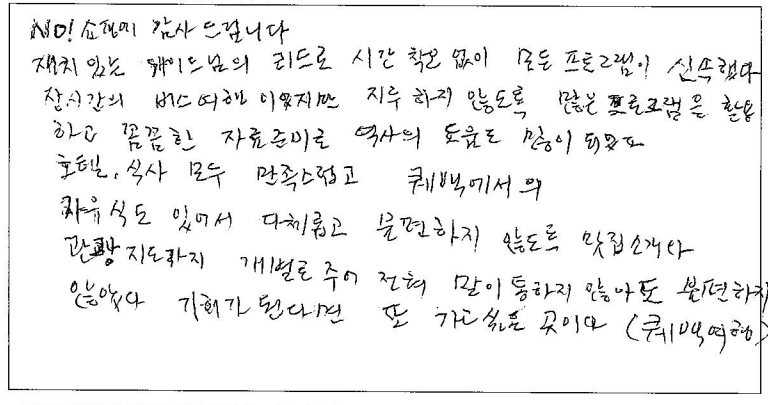 NO! 쇼핑이 감사드립니다
재치있는 가이드님의 리드로 시간 착오 없이 모든 프로그램이 신속했다
장시간의 버스여행이었지만 지루하지 않도록 많은 프로그램을 활용
하고 꼼꼼한 자료준비로 역사의 도움도 많이 되었고
호텔, 식사 모두 만족스럽고 퀘백에서의
자유식도 있어서 다채롭고 불편하지 않도록 맛집소개와
관광지도까지 개별로 주어 전혀 말이 통하지 않아도 불편하지
않았다 기회가 된다면 또 가고싶은 곳이다 (퀘백여행)